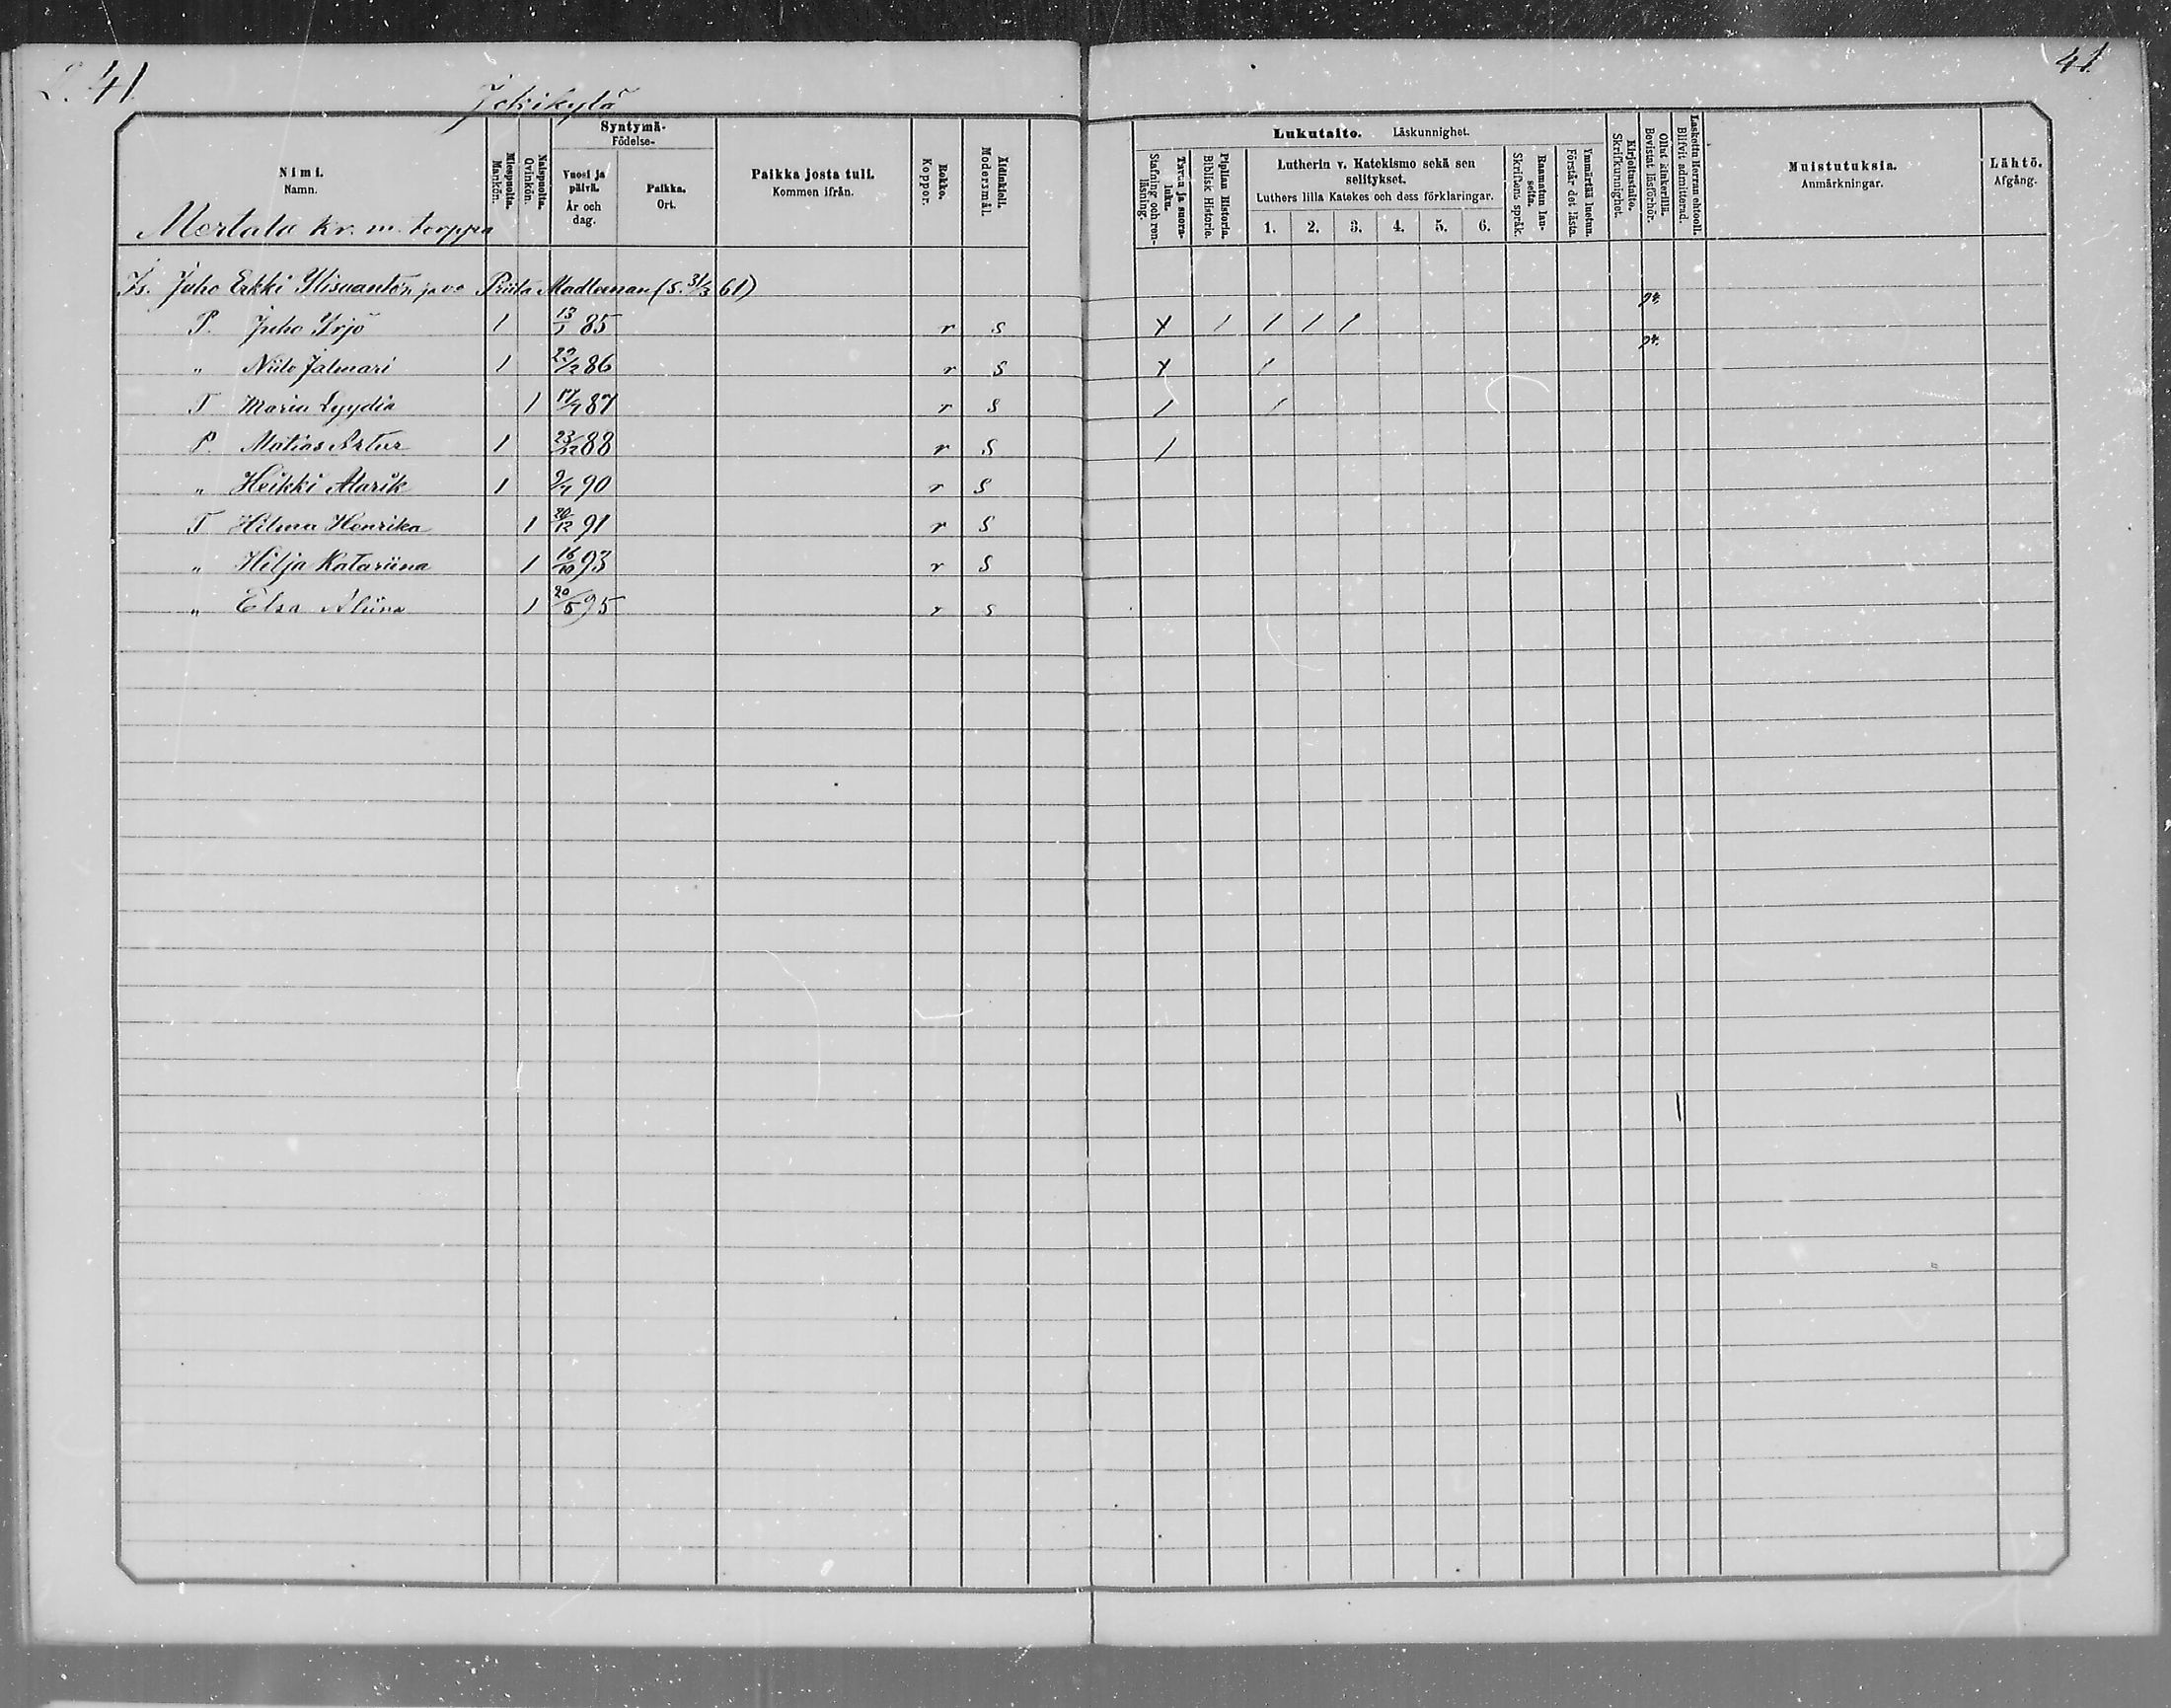 L. 41. Jokikylä 41.
Nimi. Namn. Miespuolia. Mankön. Naispuolia. Qvinkön. Syntymä- Födelse- Vuosi ja päivä. År och dag. Paikka. Ort. Paikka josta tuli. Kommen ifrån. Rokko. Koppor. Äidinkieli. Modersmål.
Lukutaito. Läskunnighet. Tavuu ja suora-luku. Stafning och ren-läsning. Piplian Historia. Biblisk Historie. Lutherin v. Katekismo sekä sen selitykset. Luthers lilla Katekes och dess förklaringar. 1. 2. 3. 4. 5. 6. Raamatun lau-seita. Skriftens språk. Ymmärtää luetun. Förstår det lästa. Kirjoitustaito. Skrifkunnighet. Ollut kinkerillä. Bevistat läsförhör. Laskettu Herran ehtooll. Blifvit admitterad. Muistutuksia. Anmärkningar. Lähtö. Afgång.
Mertala kr. m. torppa
Is. Juho Erkki Ylisuanton ja vo Priita Madlenan (s. 31/3 61)
P. Juho Yrjö 1 13/1 85 r s x 1 1 1 1
" Niilo Jalmari 1 22/2 86 r s x 1
T Maria Lyydia 1 17/7 87 r s 1 1
P. Matias Artur 1 23/12 88 r s 1
" Heikki Alarik 1 2/7 90 r s
T Hilma Henrika 1 20/12 91 r s
" Hilja Katariina 1 16/10 93 r s
" Elsa Aliina 1 20/5 95 r s